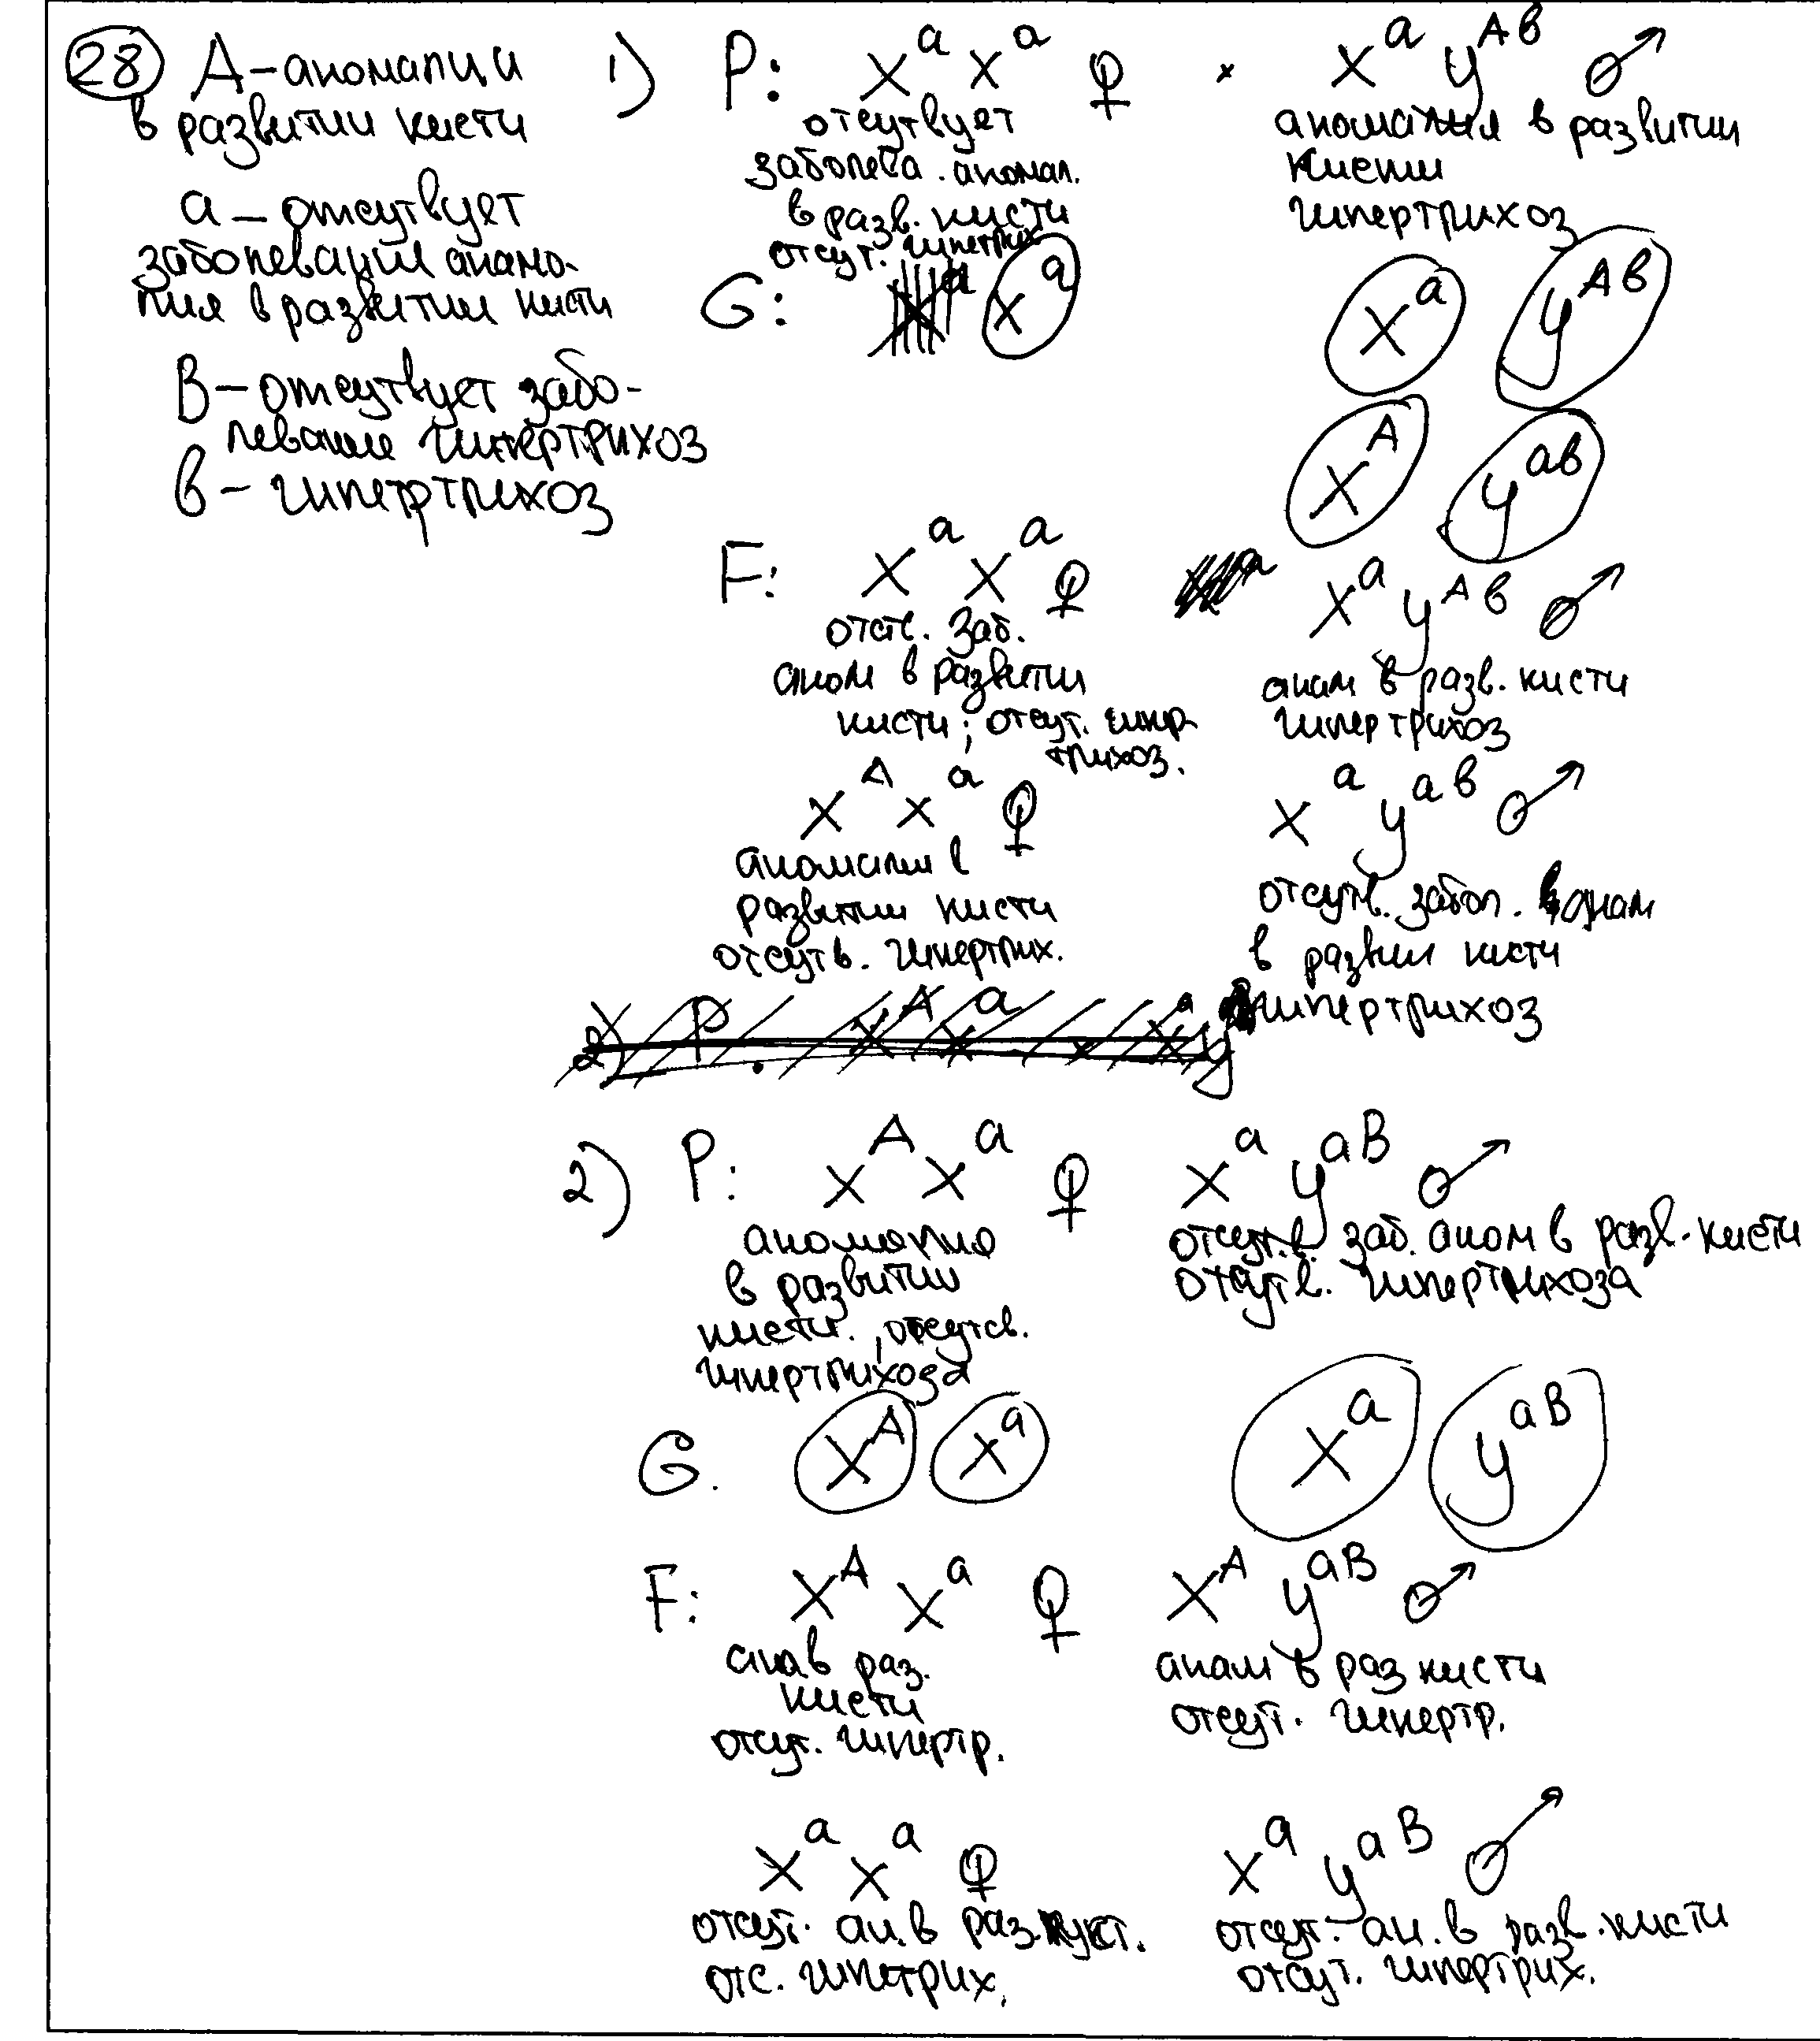 28 А – аномалии
в развитии кисти
а – отсутвует
заболевации анамо-
лия в развитии кисти
В – отсутвует забо-
левание гипертрихоз
в – гипертрихоз
1) P: X^a X^a ♀ × X^a y^Aв ♂
отсутвует
заболева. аномал.
в разв. кисти
отсут. гипетрих
аномалия в развитии
кисти
гипертрихоз
G: X^a X^a y^Aв
X^A y^aв
F: X^a X^a ♀ X^a y^Aв ♂
отств. заб.
аном в развити
кисти; отсут. гипр
трихоз.
анам в разв. кисти
гипертрихоз
X^A X^a ♀ X^a y^aв ♂
аномалии в
развитии кисти
отсутв. гипертрих.
отсутв. забол. анам
в развии кисти
гипертрихоз
2) P: X^A X^a ♀ X^a y^aB ♂
аномалия
в развитии
кисти., отсутсв.
гипертрихоза
отсут.в. заб. аном в разв. кисти
отсутв. гипертрихоза
G. X^A X^a X^a y^aB
F: X^A X^a ♀ X^A y^aB ♂
анав раз.
кисти
отсут. гипертр.
анам в раз кисти
отсут. гипертр.
X^a X^a ♀ X^a y^aB ♂
отсут. ан. в раз. кист.
отс. гипетрих.
отсут. ан. в разв. кисти
отсут. гипертрих.